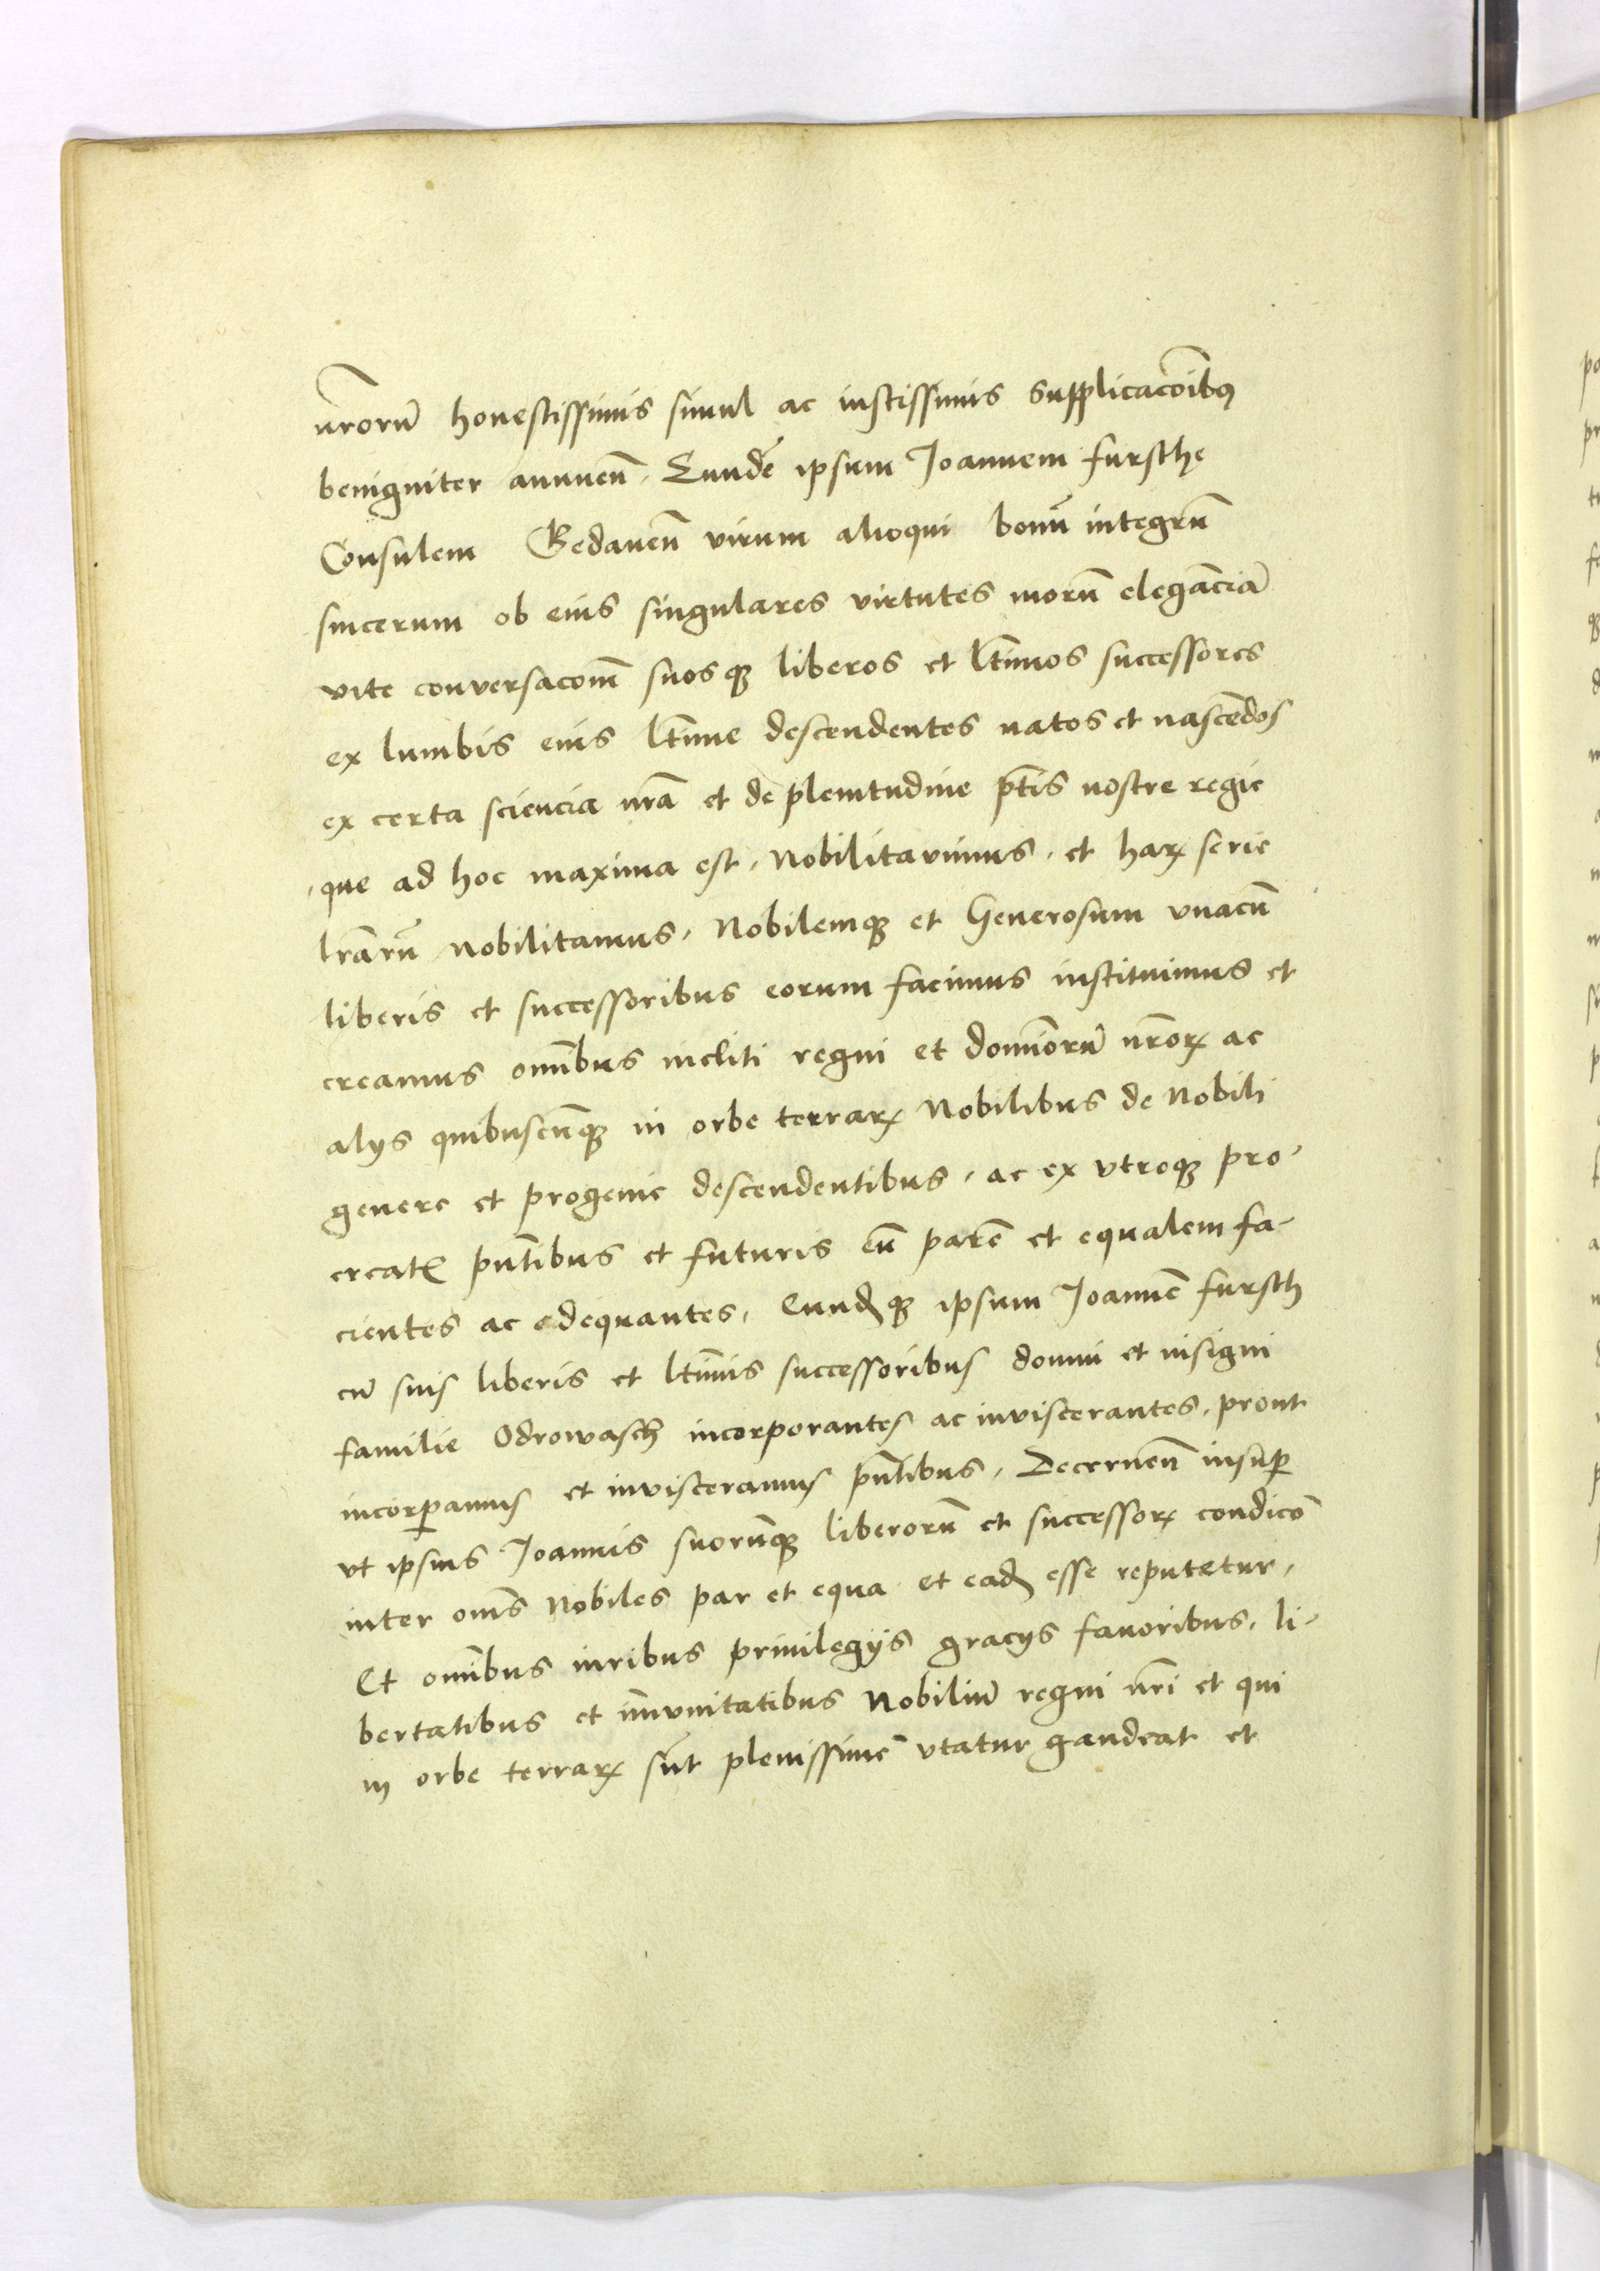 nrorū honestissimis simul ac iustissimis supplicacōibus
benigniter annuen̄. Eundē ipsum Joannem fursche
Consulem Gedanen̄ virum alioqui bonū integrū
sincerum ob eius singulares virtutes morū elegāciā
vite conversacōm̄ suosqȝ liberos et ltīmos successores
ex lumbis eius ltīme descendentes natos et nascēdos
ex certa sciencia nrā et de plenitudine ptīs nostre regie
que ad hoc maxima est. Nobilitavimus. et harꝝ serie
lrārū nobilitamus. Nobilemqȝ et Generosum vnacū
liberis et successoribus eorum facimus instituimus et
creamus omībus incliti regni et domīorū nrōrꝝ ac
alys quibuscūqȝ in orbe terrarꝝ Nobilibus de Nobili
genere et progenie descendentibus. ac ex vtroqȝ pro-
creatꝭ pn̄tibus et futuris eū parē et equalem fa-
cientes ac adequantes. Eundꝫqȝ ipsum Joannē fursch
cū suis liberis et ltīmis successoribus domui et insigni
familie Odrowasch incorporantes ac inviscerantes. prout
incorꝑamus et invisceramus pn̄tibus. Decernen̄ insuꝑ
vt ipsius Joannis suorūqȝ liberorū et successorꝝ condicō
inter omēs Nobiles par et equa et eadꝫ esse reputetur.
Et omībus iuribus privilegijs gracys favoribus. li-
bertatibus et īmunitatibus Nobiliū regni nrī et qui
in orbe terrarꝝ sūt plenissime vtatur gaudeat et